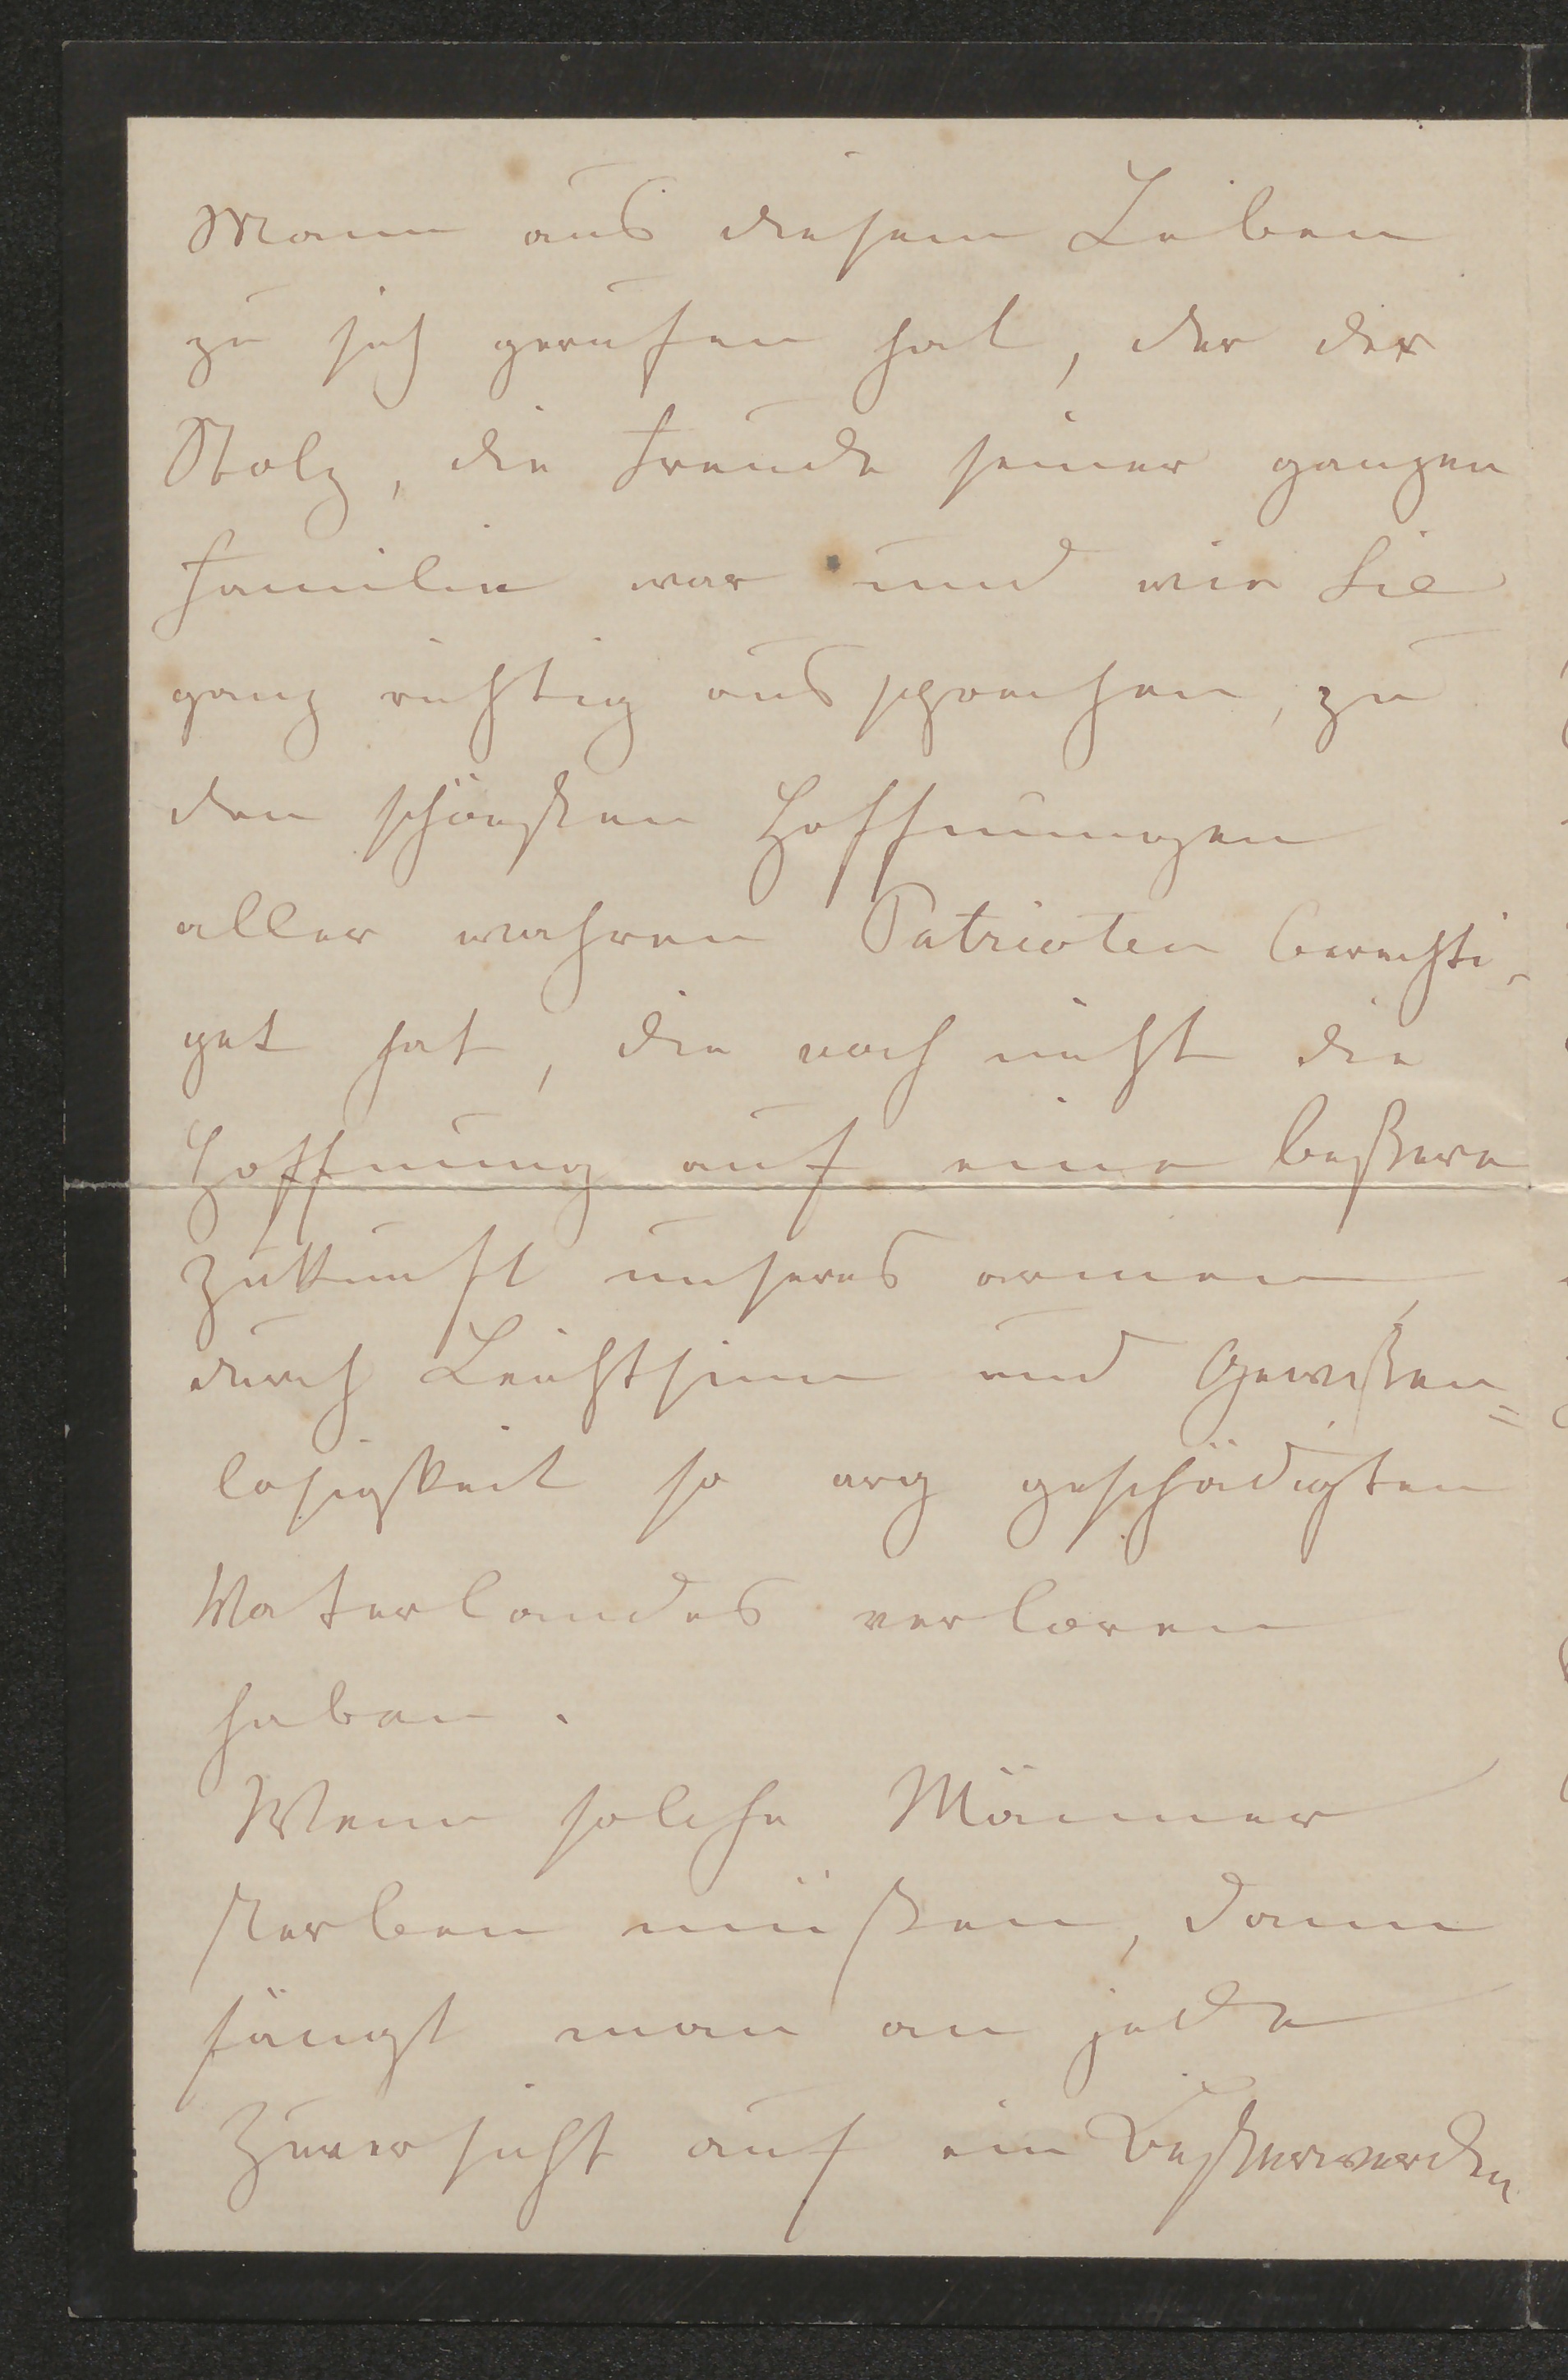 Mann aus diesem Leben
zu sich gerufen hat, der der
Stolz, die Freude seiner ganzen
Familie war und wie Sie
ganz richtig aussprechen, zu
den schönsten Hoffnungen
aller wahren Patrioten berechti-
get hat, die noch nicht die
Hoffnung auf eine beßere
Zukunft unseres armen,
durch Leichtsinn und Gewißen=
losigkeit so arg geschädigten
Vaterlandes verloren
haben.
Wenn solche Männer
sterben müßen, dann
fängt man an jede
Zuversicht auf ein Beßerwerden